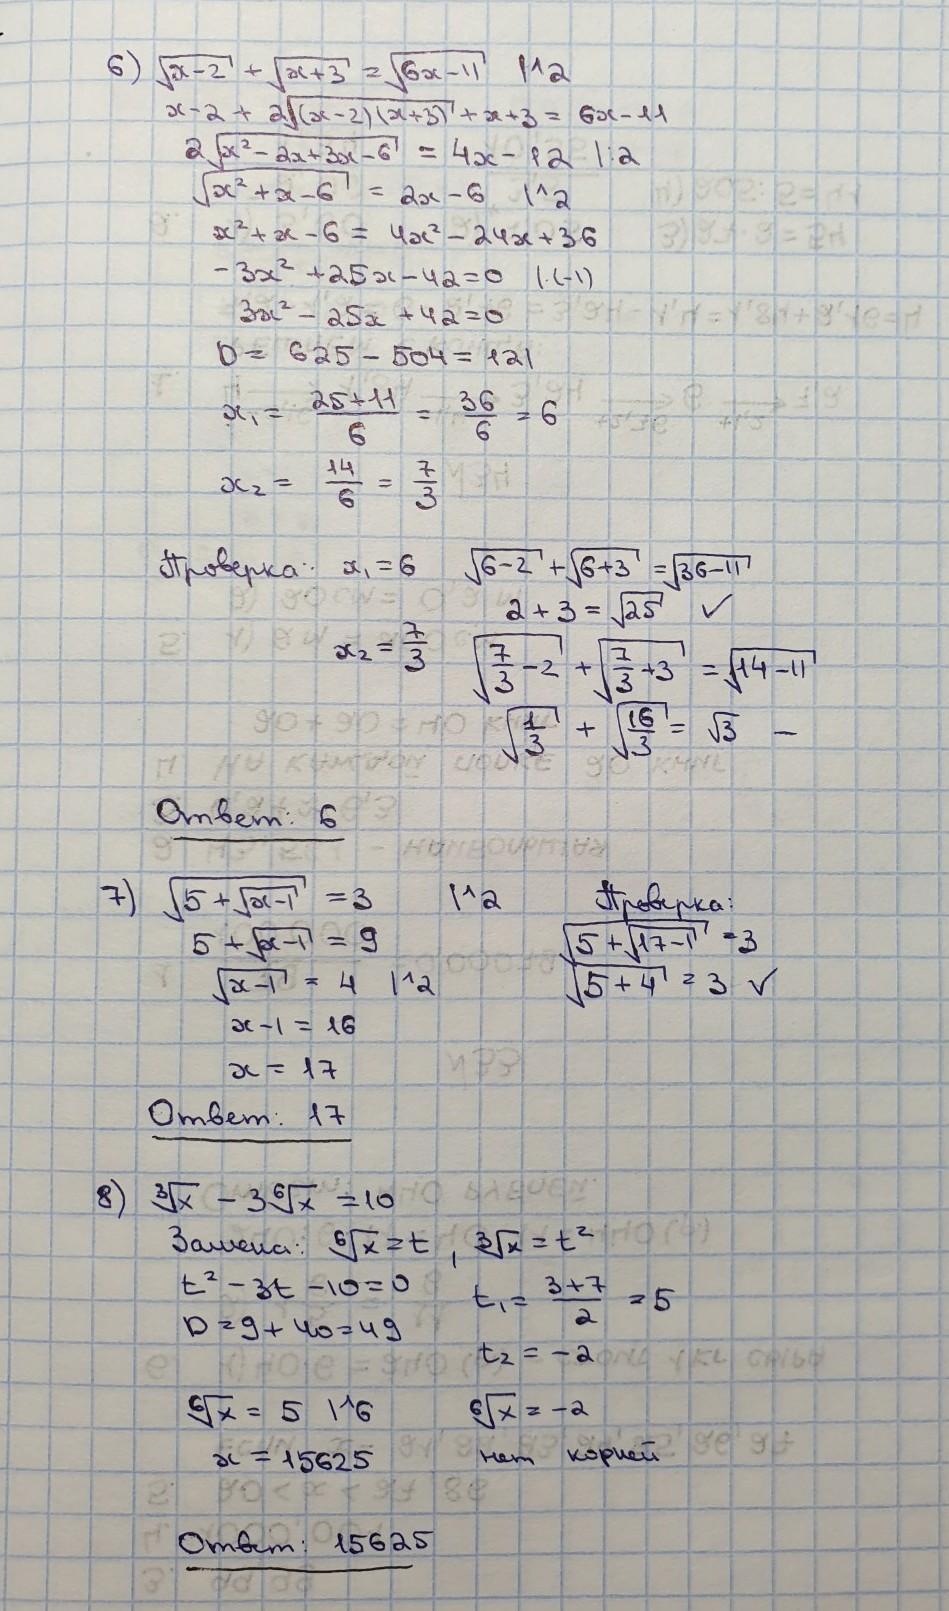 6) √(x-2) + √(x+3) = √(6x-11) |^2
x-2 + 2√((x-2)(x+3)) + x+3 = 6x-11
2√(x²-2x+3x-6) = 4x-12 |:2
√(x²+x-6) = 2x-6 |^2
x²+x-6 = 4x²-24x+36
-3x²+25x-42=0 |·(-1)
3x²-25x+42=0
D = 625-504 = 121
x₁ = (25+11)/6 = 36/6 = 6
x₂ = 14/6 = 7/3
Проверка: x₁=6 √(6-2) + √(6+3) = √(36-11)
2+3 = √25 ✓
x₂ = 7/3 √(7/3-2) + √(7/3+3) = √(14-11)
√(1/3) + √(16/3) = √3 —
Ответ: 6
7) √(5+√(x-1)) = 3 |^2
5+√(x-1) = 9
√(x-1) = 4 |^2
x-1 = 16
x = 17
Проверка:
√(5+√(17-1)) = 3
√(5+4) = 3 ✓
Ответ: 17
8) ∛x - 3⁶√x = 10
Замена: ⁶√x = t, ∛x = t²
t²-3t-10=0
D=9+40=49
t₁ = (3+7)/2 = 5
t₂ = -2
⁶√x = 5 |^6
x = 15625
⁶√x = -2
нет корней
Ответ: 15625